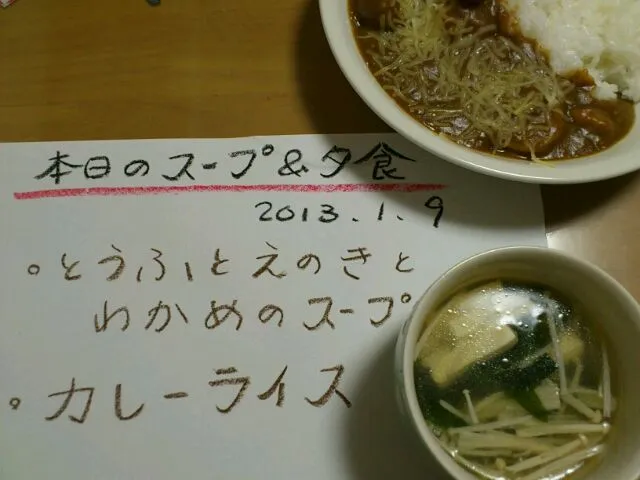 本日のスープ&夕食
2013.1.9
。とうふとえのきと
わかめのスープ
。カレーライス